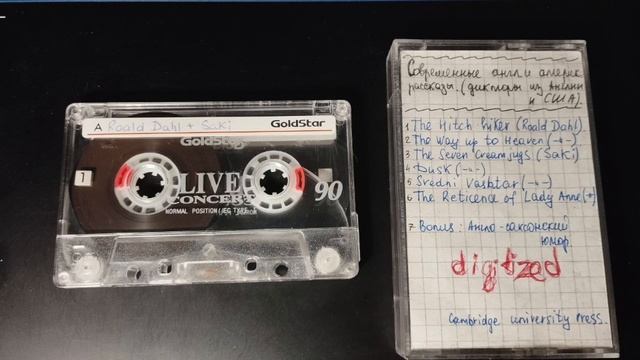 A Roald Dahl + Saki GoldStar
GoldStar
1
LIVE
CONCERT
90
NORMAL POSITION (IEC TYPE I)
Современные англ и америк
рассказы. (дикторы из Англии
и США).
1 The Hitch hiker (Roald Dahl).
2 The Way up to Heaven (-"-)
3 The Seven Creamjugs (Saki)
4 Dusk (-"-)
5 Sredni Vashtar (-"-)
6 The Reticence of Lady Anne (-"-)
7 Bonus: Англо-саксонский
юмор
digitized
Cambridge university Press.